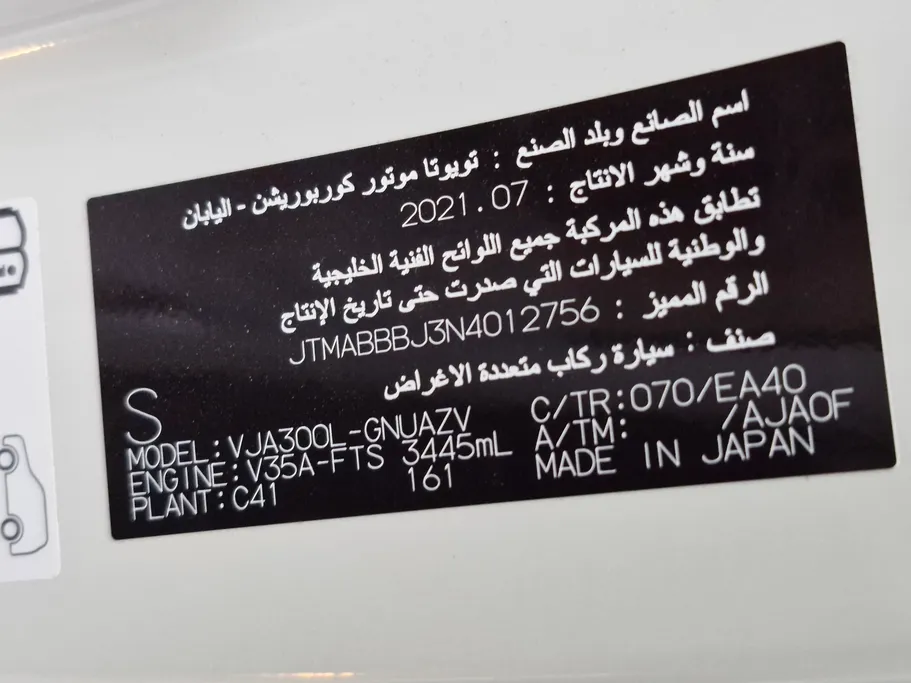 اسم الصانع وبلد الصنع : تويوتا موتور كوربوريشن - اليابان
سنة وشهر الانتاج : 2021.07
تطابق هذه المركبة جميع اللوائح الفنية الخليجية
والوطنية للسيارات التي صدرت حتى تاريخ الإنتاج
الرقم المميز : JTMABBBJ3N4012756
صنف : سيارة ركاب متعددة الاغراض
S
MODEL:VJA300L-GNUAZV C/TR:070/EA40
ENGINE:V35A-FTS 3445mL A/TM: /AJA0F
PLANT:C41 161 MADE IN JAPAN